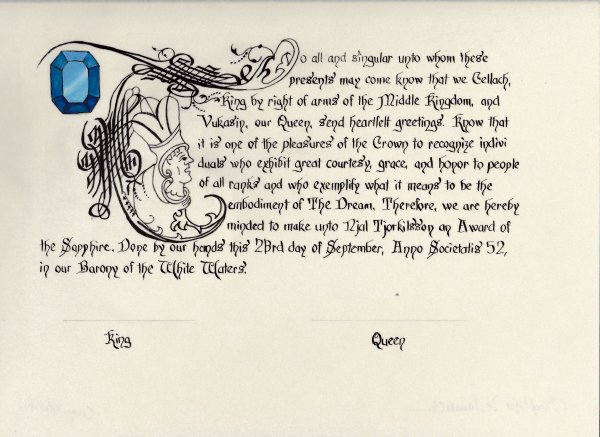 To all and singular unto whom these
presents may come know that we Cellach,
King by right of arms of the Middle Kingdom, and
Vukasin, our Queen, send heartfelt greetings. Know that
it is one of the pleasures of the Crown to recognize indivi
duals who exhibit great courtesy, grace, and honor to people
of all ranks and who exemplify what it means to be the
embodiment of The Dream. Therefore, we are hereby
minded to make unto Njal Tjorkilsson an Award of
the Sapphire. Done by our hands this 23rd day of September, Anno Societatis 52,
in our Barony of the White Waters.
King
Queen